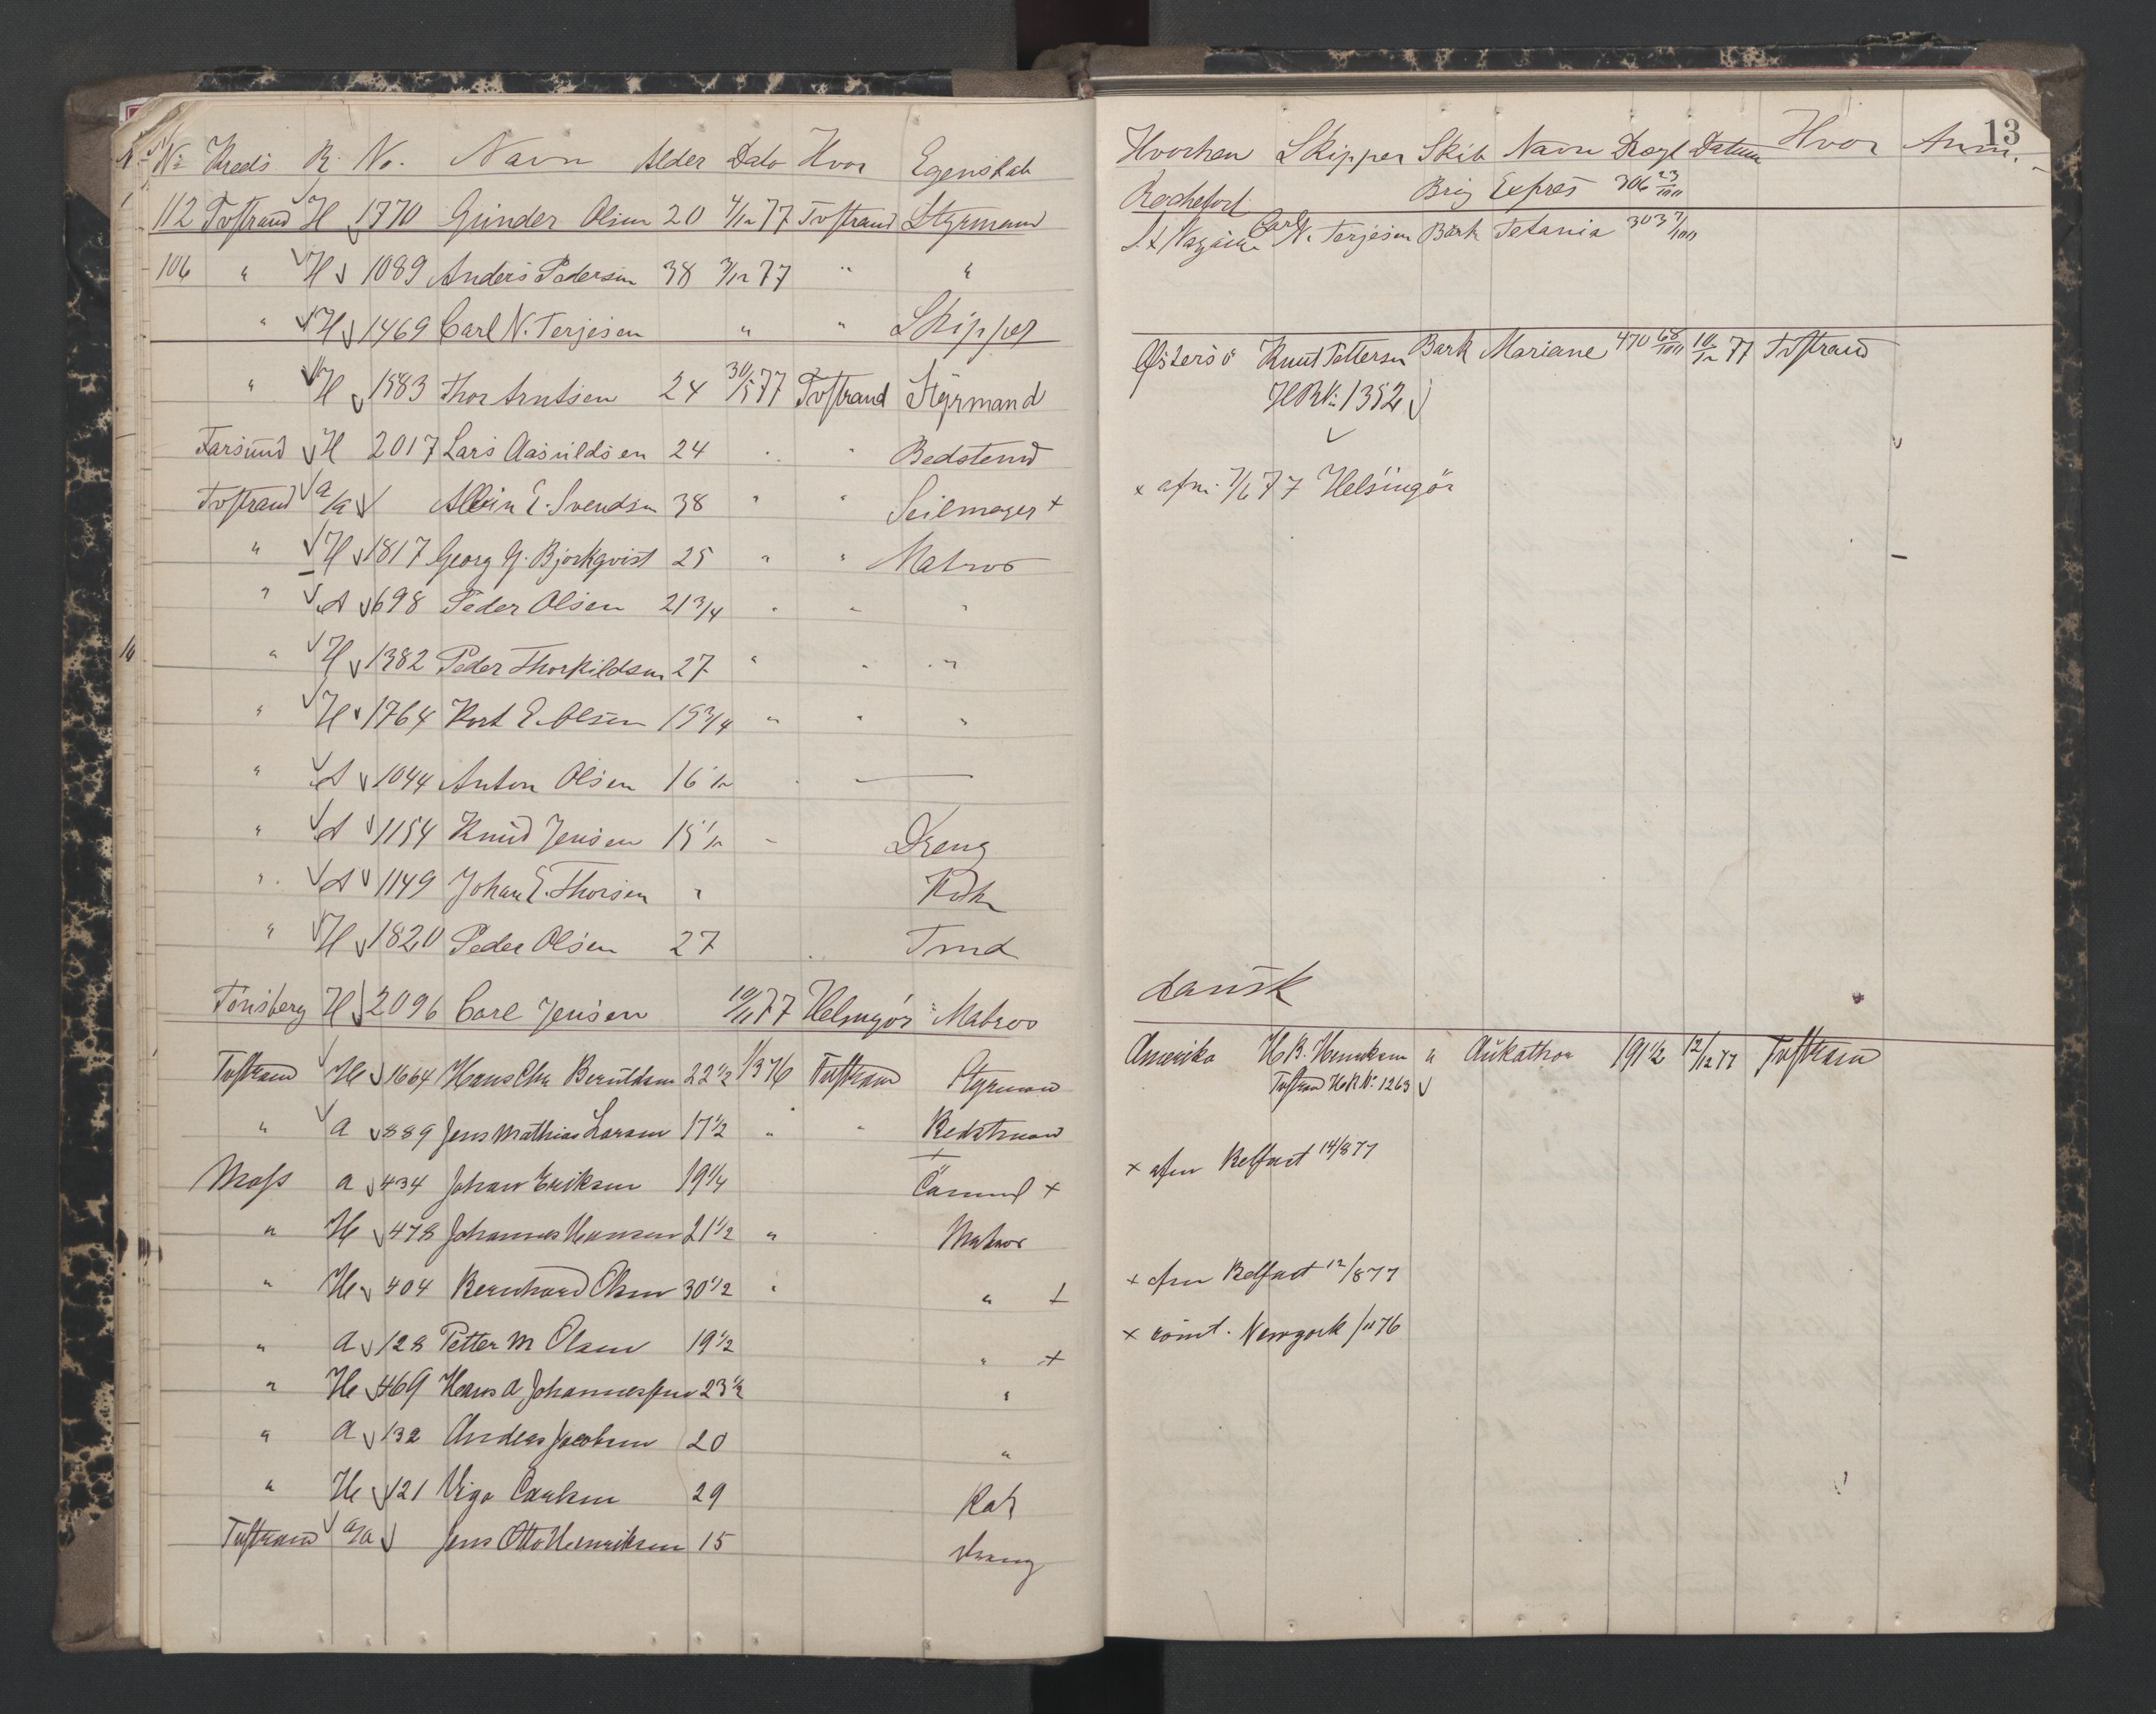 No Kreds R. No. Navn Alder Dato Hvor Egenskab
112 Tvstrand H 1770 Gunder Olsen 20 4/12 77 Tvstrand Styrmand
106 " H 1089 Anders Pedersen 38 3/12 77 " "
" H 1469 Carl N. Terjesen " " Skipper
" H 1583 Thor Arntsen 24 30/5 77 Tvstrand Styrmand
Farsund H 2017 Lars Aasuldsen 24 " " Bedstemd
Tvstrand a/a E. Svendsen 38 " " Seilmager +
" H 1817 Georg G. Bjorkqvist 25 " " Matros
" A 698 Peder Olsen 21 3/4 " " "
" H 1382 Peder Thorkildsen 27 " " "
" H 1764 Kort E. Olsen 19 3/4 " " "
" A 1044 Anton Olsen 16 1/2
" A 1154 Knud Jensen 15 1/2 " Dreng
" A 1149 Johan E. Thorsen " Kok
" H 1820 Peder Olsen 27 Tmd
Tönsberg H 2096 Carl Jensen 10/11 77 Helsingör Matros
Tvstrand H 1664 Hans Chr Beruldsen 22 1/2 1/3 76 Tvstrand Styrmand
" a 889 Jens Mathias Larsen 17 1/2 " " Bedstmand
Moss a 434 Johan Eriksen 19 1/4 +
" H 478 Johannes Hansen 21 1/2 " Matros
" H 404 Bernhard Olsen 30 1/2 " " +
" a 128 Petter M Olsen 19 1/2 " +
" H 469 Hans A Johannessen 23 1/2 "
" a 132 Andeas Jacobsen 20 "
" H 121 Vigo Carlsen 29 Kok
Tvstrand a/a Jens Otto Henriksen 15 dreng
13
Hvorhen Skipper Skib Navn Drægt Datum Hvor Anm.
Rochefort Brig Expres 306 23/100
St Nazaire Carl N. Terjesen Bark Tetania 303 7/100
Östersö Knut Pettersen Bark Mariane 470 68/100 10/12 77 Tvstrand
H R No 1352
x afm. 7/6 77 Helsingör
dansk
Amerika H B. Henriksen " 191 1/2 12/12 77 Tvstrand
Tvstrand H R No 1263
x afm Belfast 14/8 77
x afm Belfast 12/8 77
x römt. Newyork /11 76